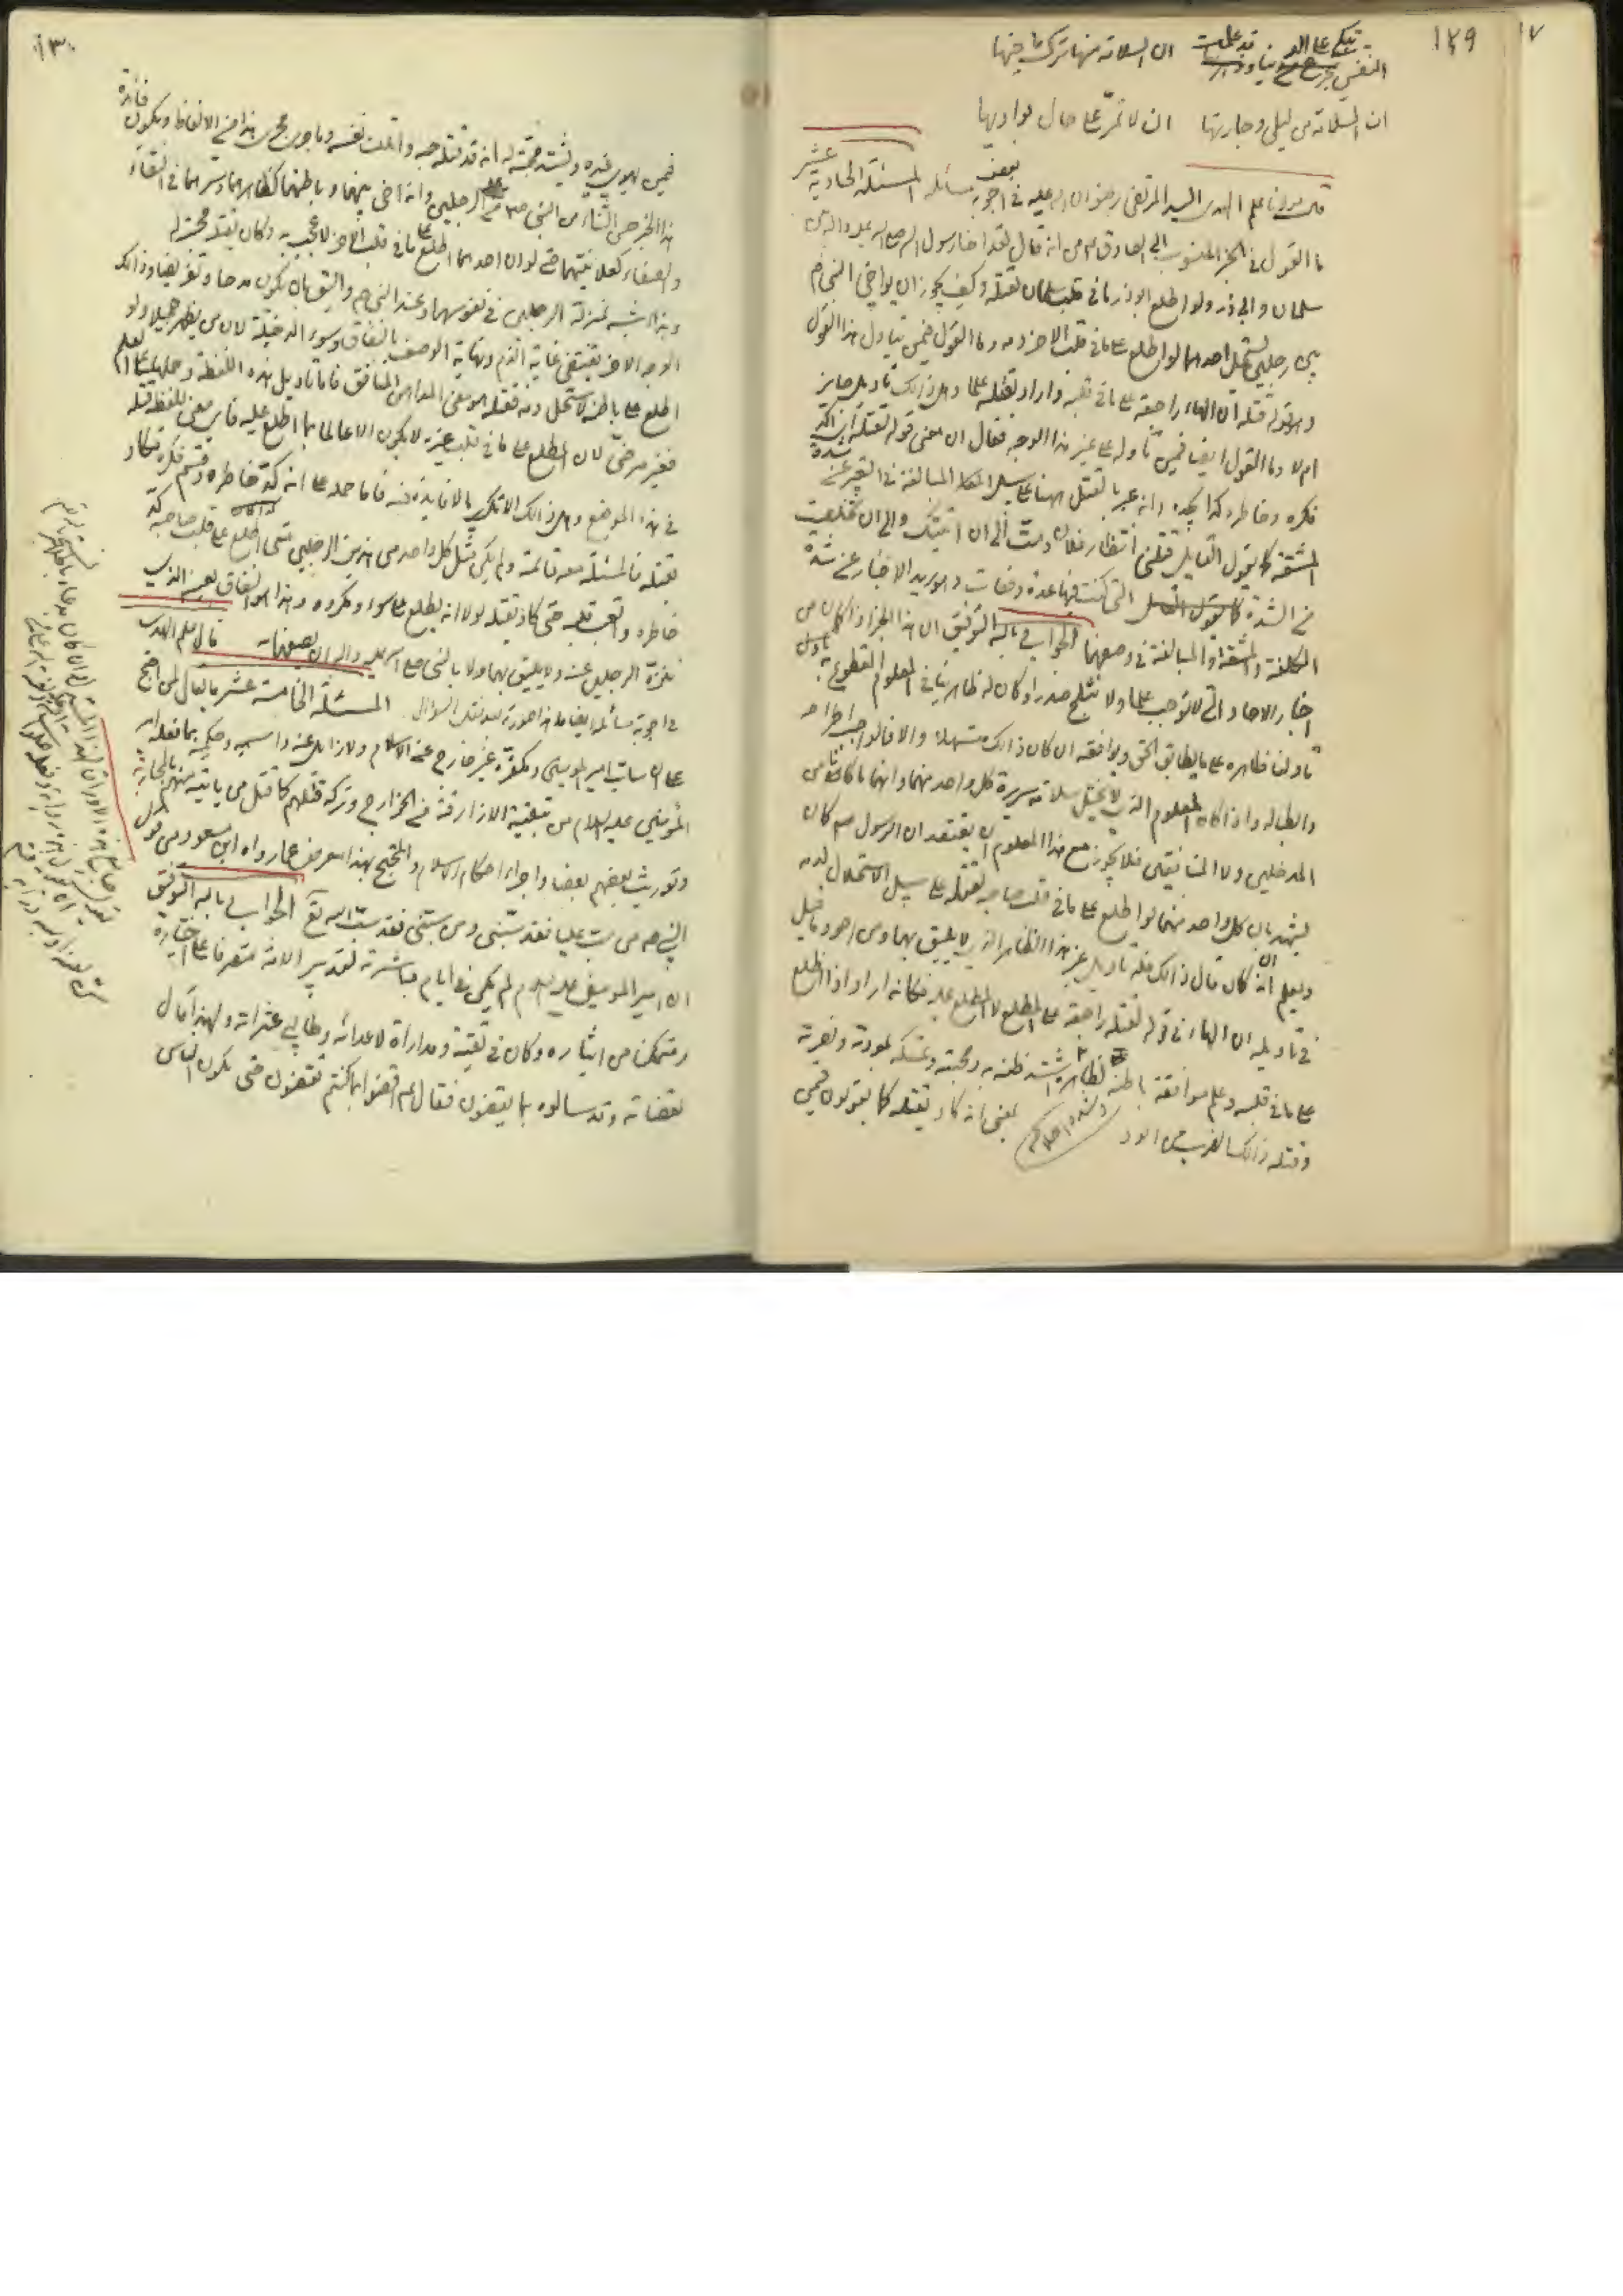 ١٢٩
النفس تبكي على الدنيا وقد علمت ان السلامة منها ترك ما فيها
ان السلامة من ليلى وجارتها ان لا تمر على حال بواديها
قال مولانا علم الهدى السيد المرتضى رضوان الله عليه في اجوبة بعض مسائله المسئلة الحادية عشر
ما القول في الخبر المنسوب الى الصادق انه قال لقد اخا رسول الله صلى الله عليه واله بين
سلمان وابي ذر ولو اطلع ابو ذر ما في قلب سلمان لقتله وكيف يجوز ان يواخي النبي ص
بين رجلين يستحل احدهما لو اطلع على ما في قلب الاخر دمه وما القول فيمن تاول هذا القول
وهو قوله قتله ان الهاء راجعة على ما في قلبه واراد بقتله علما وهل ذلك تاويل جايز
ام لا وما القول ايضا فيمن تاوله على غير هذا الوجه فقال ان معنى قوله لقتله اي اكد
فكره وخاطره كدا يجهده وانه عبر بالقتل ههنا على سبيل المبالغة في التعبير عن شدة
المشقة كما يقول القايل قتلني انتظار فلان ومت الى ان اتيتك والى ان تخلصت
من الشدة التي كنت فيها عدة دفعات وهو يريد الاخبار عن شدة
الكلفة والمشقة والمبالغة في وصفهما الجواب بالله التوفيق ان هذا الخبر اذا كان من
اخبار الاحاد التي لا توجب علما ولا تثلج صدرا وكان له ظاهر ينافي المعلوم المقطوع به
تاولنا ظاهره على ما يطابق الحق ويوافقه ان كان ذلك مستسهلا والا فالواجب اطراحه
وابطاله واذا كان المعلوم الذي لا يختل سلامة سريرة كل واحد منهما وانهما ما كانا من
المدخلين ولا المنافقين فلا يجوز مع هذا المعلوم ان يعتقد ان الرسول ص كان
يشهد بان كل واحد منهما لو اطلع على ما في قلب صاحبه لقتله على سبيل الاستحلال لدمه
ويعلم انه ان كان قال ذلك فله تاويل غير هذا الظاهر الذي لا يليق بهما ومن اجود ما قيل
في تاويله ان الهاء في قوله لقتله راجعة على المطلع لا المطلع عليه فكانه اراد اذا اطلع
على ما في قلبه وعلم موافقة باطنه لظاهره اشتد ظنه به ومحبته وتمسكه بمودته ونصرته
وقتله ذلك الضرب من الود بمعنى انه كاد يقتله كما يقولون فيمن
١٣٠
فيمن يهوى غيره ويشتد محبته له انه قد قتله حبه واتلف نفسه وما جرى مجرى هذا من الالفاظ ويكون فائدة
هذا الخبر حسن الثناء من النبي ص على الرجلين وانه اخى بينهما وباطنهما كظاهرهما وسرهما في النقاء
والصفاء كعلانيتهما حتى لو ان احدهما اطلع على ما في قلب الاخر لاعجب به ولكان يقتله محبته له
وهذا اشبه بمنزلة الرجلين في نفوسهما وعند النبي ص واليق بان يكون مدحا وتفريضا وذلك
الوجه الاخر يقتضي غاية الذم ونهاية الوصف بالنفاق وسوء الدخيلة لان من يظهر جميلا ولو
اطلع على باطنه لاستحل دمه فقتله هو معنى المداهن المنافق فاما تاويل هذه اللفظة وحملها على العلم
فغير مرضي لان المطلع على ما في قلب غيره لا يكون الا عالما بما اطلع عليه فاي معنى للفظة قتله
في هذا الموضع وهل ذلك الا تكرير بما لا فايدة فيه فاما حمله على انه كد خاطره وقسم فكره فكاد
يقتله فالمسئلة معه قائمة ولم يكن مثل كل واحد من هذين الرجلين متى اطلع على قلب صاحبه كد
خاطره واتعب قلبه حتى كاد يقتله لولا انه يطلع على سوء ومكروه وهذا هو النفاق بعينه الذي
ننزه الرجلين عنه ولا يليق بهما ولا بالنبي صلى الله عليه واله ان يصفهما به قال علم الهدى
في اجوبة مسائله ايضا ما هذا صورته بعد نقل السؤال المسئلة الخامسة عشر ما يقال لمن احتج
على ان ساب امير المؤمنين ومكفره غير خارج عن الاسلام ولا زايل عنه واسمه وحكمه بما فعله امير
المؤمنين عليه السلام من تبقية الازارقة من الخوارج وتركه قتلهم كما قتل من يابيه منهم بالمحاربة
وتوريث بعضهم بعضا واجراء احكام الاسلام والمحتج بهذا معرض عما رواه ابن مسعود من قول
النبي ص من سب عليا فقد سبني ومن سبني فقد سب الله تع الجواب بالله التوفيق
ان امير المؤمنين عليه السلام لم يكن في ايام مباشرته لتدبير الامة متصرفا على اختياره
ومتمكنا من ايثاره وكان في تقية ومداراة لاعدائه وطالبي عثراته ولهذا قال
لقضاته وقد سالوه بما يقضون فقال عم اقضوا بما كنتم تقضون حتى يكون الناس